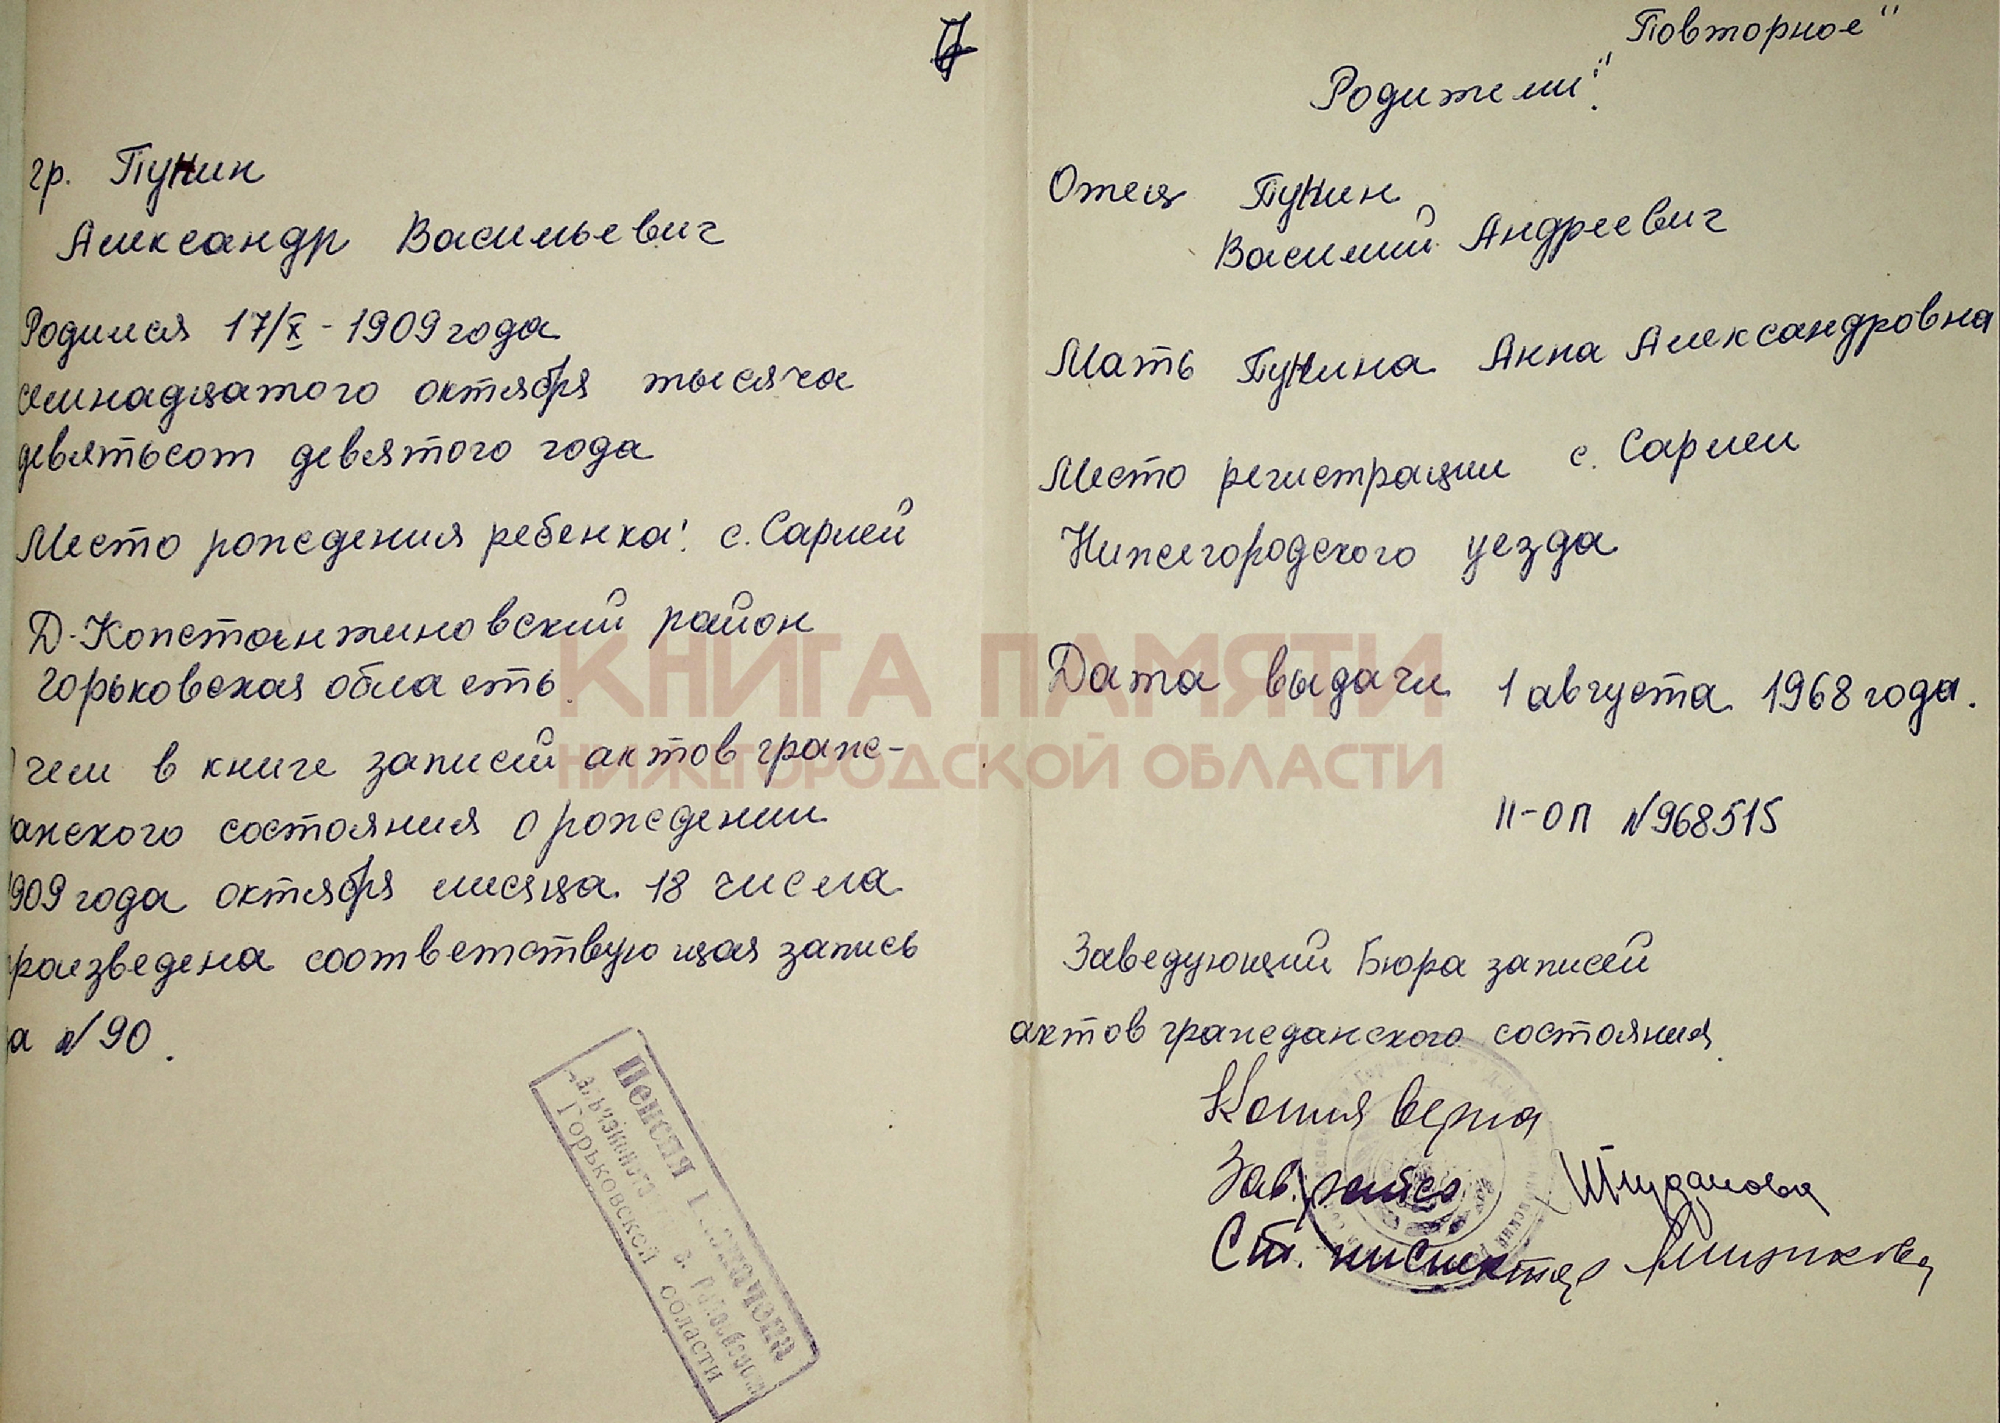 гр. Пунин
Александр Васильевич
Родился 17/X - 1909 года
семнадцатого октября тысяча
девятьсот девятого года
Место рождения ребенка: с. Сарлей
Д-Константиновский район
Горьковская область
О чем в книге записей актов граж-
данского состояния о рождении
1909 года октября месяца 18 числа
произведена соответствующая запись
за №90.
Пенсия
Горьковской области
„Повторное"
Родители":
Отец Пунин
Василий Андреевич
Мать Пунина Анна Александровна
Место регистрации с. Сарлеи
Нижегородского уезда
Дата выдачи 1 августа 1968 года.
II-ОП №968515
Заведующий Бюра записей
актов гражданского состояния.
Копия верна
Зав.
Ст. инспектор
КНИГА ПАМЯТИ
НИЖЕГОРОДСКОЙ ОБЛАСТИ